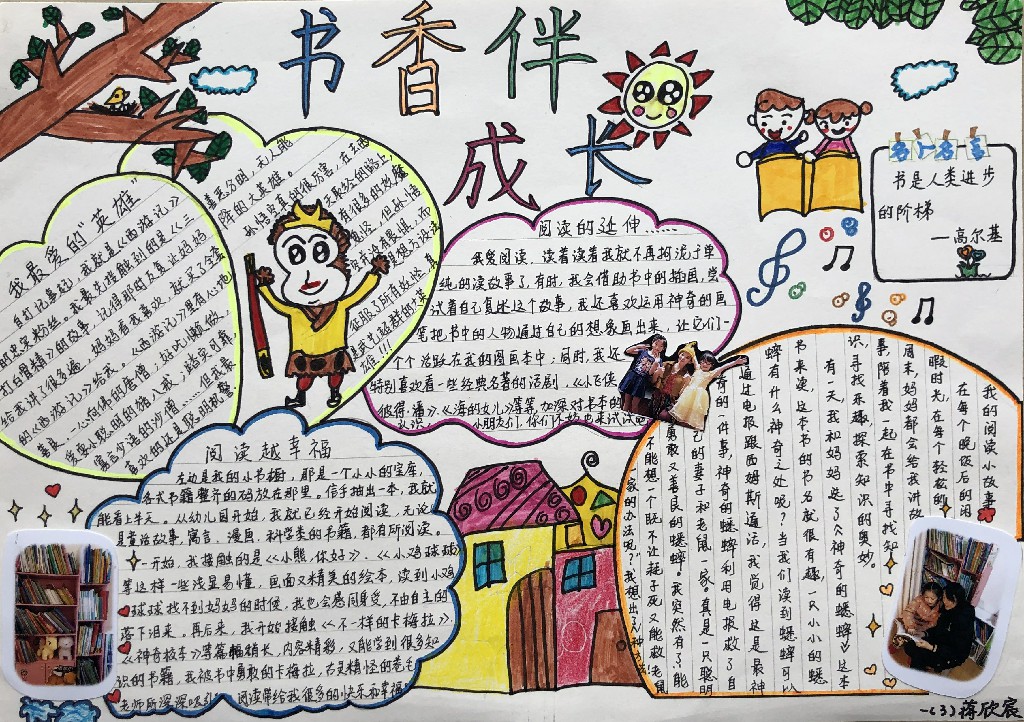 书香伴
成长
我最爱的“英雄”
自打记事起，我就是《西游记》
的忠实粉丝。我最先接触到的是《三
打白骨精》的故事，记得那时反复让妈妈
给我讲了很多遍，妈妈看我喜欢，就买了全套
的《西游记》给我。《西游记》里有心地
善良，一心向佛的唐僧；好吃懒做，
爱耍小聪明的猪八戒；踏实肯干，
寡言少语的沙僧……但我最
喜欢的还是聪明机智
善恶分明，无人能
降的大英雄。
阅读的延伸……
我爱阅读，读着读着我就不再拘泥于单
纯的读故事了，有时，我会借助书中的插画，尝
试着自己复述这个故事，我还喜欢运用神奇的画
笔把书中的人物通过自己的想象画出来，让它们一
个个活跃在我的图画本中；同时，我还
特别喜欢看一些经典名著的话剧，《小飞侠
彼得·潘》、《海的女儿》等等，加深对书本的
认识，小朋友们，你们不妨也来试试
名人名言
书是人类进步
的阶梯
—高尔基
阅读越幸福
左边是我的小书橱，那是一个小小的宝库，
各式书籍整齐的码放在那里。信手抽出一本，我就
能看上半天。从幼儿园开始，我就已经开始阅读，无论
是童话故事，寓言，漫画，科学类的书籍，都有所阅读。
一开始，我接触的是《小熊，你好》、《小鸡球球》
等这样一些浅显易懂，画面又精美的绘本，读到小鸡
球球找不到妈妈的时候，我也会感同身受，不由自主的
落下泪来。再后来，我开始接触《不一样的卡梅拉》、
《神奇校车》等篇幅稍长，内容精彩，又能学到很多知
识的书籍，我被书中勇敢的卡梅拉，古灵精怪的卷毛
老师所深深吸引 阅读带给我很多的快乐和幸福
我的阅读小故事
在每个晚饭后的闲
暇时光，在每个轻松的
周末，妈妈都会给我讲故
事，陪着我一起在书中寻找知
识，寻找乐趣，探索知识的奥妙。
有一天，我和妈妈选了《神奇的蟋蟀》这本
书来读，这本书的书名就很有趣，一只小小的蟋
蟀有什么神奇之处呢？当我们读到蟋蟀可以
通过电报跟西姆斯通话，我觉得这是最神
奇的一件事，神奇的蟋蟀利用电报救了自
己的妻子和老鼠一家。真是一只聪明
勇敢又善良的蟋蟀。我突然有了
不能想一个既不让耗子死又能救老鼠
一家的办法呢？我想出了
一(3)蒋欣宸